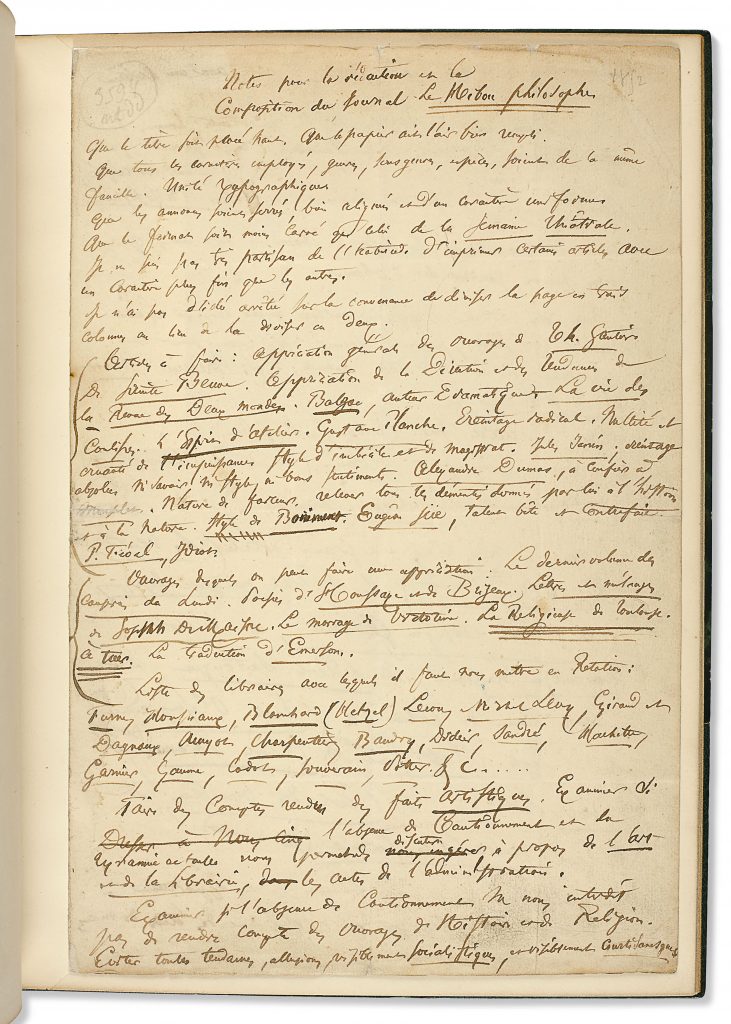 1852
Notes pour la rédaction et la
Composition du Journal Le Hibou philosophe
Que le titre soit placé haut. Que le papier ait l'air bien rempli.
Que tous les caractères employés, genres, sous genres, espèces, soient de la même
famille. Unité typographique
Que les annonces soient serrées, bien alignées et d'un caractère uniforme
Que le format soit moins carré que celui de la Semaine théâtrale.
Je ne suis pas très partisan de l'habitude d'imprimer certains articles avec
un caractère plus fin que les autres.
Je n'ai pas d'idée arrêtée sur la convenance de diviser la page en trois
colonnes au lieu de la diviser en deux.
Articles à faire : appréciation générale des ouvrages de Th. Gautier
De Sainte Beuve. Appréciation de la Direction et des tendances de
la Revue des Deux mondes. Balzac, auteur Dramatique. La vie des
Coulisses. L'esprit d'atelier. Gustave Planche. Éreintage radical. Nullité et
cruauté de l'impuissance style d'imbécile et de magistrat. Jules Janin, éreintage
absolu ni savoir, ni style, ni bons sentiments. Alexandre Dumas, à confier à
Nature de farceur, relever tous les démentis donnés par lui à l'histoire
et à la nature. Style de Boniment. Eugène Süe, talent bête et contrefait
P. Féval, Idiot.
Ouvrages desquels on peut faire une appréciation. Le dernier volume des
Causeries du Lundi. Poésies d'Houssaye et de Brizeux. Lettres et mélanges
de Joseph De Maistre. Le mariage de Victorine. La Religieuse de Toulouse.
à tuer. La traduction d'Emerson.
Liste des libraires avec lesquels il faut nous mettre en Relation :
Furne, Houssiaux, Blanchard (Hetzel) Lecou, Michel Lévy, Giraud et
Dagneau, Amyot, Charpentier, Baudry, Didier, Sandré, Hachette,
Garnier, Gaume, Cadot, Souverain, Potter. &c.....
Faire des comptes rendus des faits artistiques. Examiner si
l'absence de Cautionnement et la
tyrannie actuelle nous permet de discuter à propos de l'art
et de la Librairie, les actes de l'administration.
Examiner si l'absence de Cautionnement ne nous interdit
pas de rendre compte des ouvrages d'Histoire et de Religion.
Éviter toutes tendances, allusions, visiblement socialistiques, et visiblement Courtisanesques